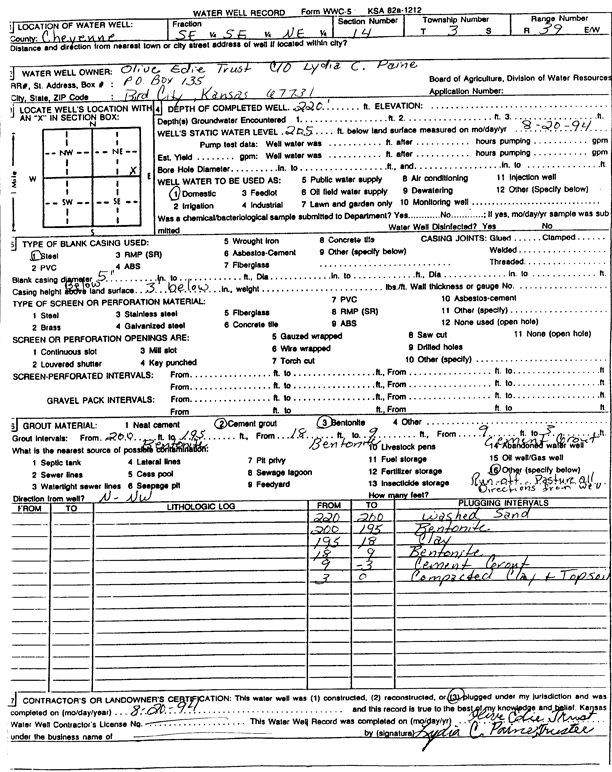 WATER WELL RECORD Form WWC-5 KSA 82a-1212
1 LOCATION OF WATER WELL: Fraction Section Number Township Number Range Number
County: Cheyenne SE ¼ SE ¼ NE ¼ 14 T 3 S R 39 E/W
Distance and direction from nearest town or city street address of well if located within city?
2 WATER WELL OWNER: Olive Edie Trust C/O Lydia C. Paine
RR#, St. Address, Box # : PO Box 135 Board of Agriculture, Division of Water Resources
City, State, ZIP Code : Bird City, Kansas 67731 Application Number:
3 LOCATE WELL'S LOCATION WITH AN "X" IN SECTION BOX:
N
NW NE
W X E
SW SE
S
1 Mile
4 DEPTH OF COMPLETED WELL. 220' ft. ELEVATION:
Depth(s) Groundwater Encountered 1. ft. 2. ft. 3. ft.
WELL'S STATIC WATER LEVEL 205 ft. below land surface measured on mo/day/yr 8-20-94
Pump test data: Well water was ft. after hours pumping gpm
Est. Yield gpm: Well water was ft. after hours pumping gpm
Bore Hole Diameter in. to ft., and in. to ft.
WELL WATER TO BE USED AS: 5 Public water supply 8 Air conditioning 11 Injection well
1 Domestic 3 Feedlot 6 Oil field water supply 9 Dewatering 12 Other (Specify below)
2 Irrigation 4 Industrial 7 Lawn and garden only 10 Monitoring well
Was a chemical/bacteriological sample submitted to Department? Yes No ; If yes, mo/day/yr sample was sub
mitted Water Well Disinfected? Yes No
5 TYPE OF BLANK CASING USED: 5 Wrought Iron 8 Concrete tile CASING JOINTS: Glued Clamped
1 Steel 3 RMP (SR) 6 Asbestos-Cement 9 Other (specify below) Welded
2 PVC 4 ABS 7 Fiberglass Threaded
Blank casing diameter 5" in. to ft., Dia in. to ft., Dia in. to ft.
Below
Casing height above land surface 3 below in., weight lbs./ft. Wall thickness or gauge No.
TYPE OF SCREEN OR PERFORATION MATERIAL: 7 PVC 10 Asbestos-cement
1 Steel 3 Stainless steel 5 Fiberglass 8 RMP (SR) 11 Other (specify)
2 Brass 4 Galvanized steel 6 Concrete tile 9 ABS 12 None used (open hole)
SCREEN OR PERFORATION OPENINGS ARE: 5 Gauzed wrapped 8 Saw cut 11 None (open hole)
1 Continuous slot 3 Mill slot 6 Wire wrapped 9 Drilled holes
2 Louvered shutter 4 Key punched 7 Torch cut 10 Other (specify)
SCREEN-PERFORATED INTERVALS: From ft. to ft., From ft. to ft.
From ft. to ft., From ft. to ft.
GRAVEL PACK INTERVALS: From ft. to ft., From ft. to ft.
From ft. to ft., From ft. to ft.
6 GROUT MATERIAL: 1 Neat cement 2 Cement grout 3 Bentonite 4 Other
Grout Intervals: From 200 ft. to 195 ft., From 18 ft. to 9 ft., From 9 ft. to 3 ft.
Bentonite Bentonite Cement Grout
What is the nearest source of possible contamination: 10 Livestock pens 14 Abandoned water well
1 Septic tank 4 Lateral lines 7 Pit privy 11 Fuel storage 15 Oil well/Gas well
2 Sewer lines 5 Cess pool 8 Sewage lagoon 12 Fertilizer storage 16 Other (specify below)
3 Watertight sewer lines 6 Seepage pit 9 Feedyard 13 Insecticide storage Run-off Pasture all Directions from well
Direction from well? N-NW How many feet?
FROM TO LITHOLOGIC LOG FROM TO PLUGGING INTERVALS
220 200 Washed Sand
200 195 Bentonite
195 18 Clay
18 9 Bentonite
9 -3 Cement Grout
3 0 Compacted Clay & Topsoil
7 CONTRACTOR'S OR LANDOWNER'S CERTIFICATION: This water well was (1) constructed, (2) reconstructed, or (3) plugged under my jurisdiction and was
completed on (mo/day/year) 8-20-94 and this record is true to the best of my knowledge and belief. Kansas
Water Well Contractor's License No. This Water Well Record was completed on (mo/day/yr) Olive Edie Trust
under the business name of by (signature) Lydia C. Paine, Trustee